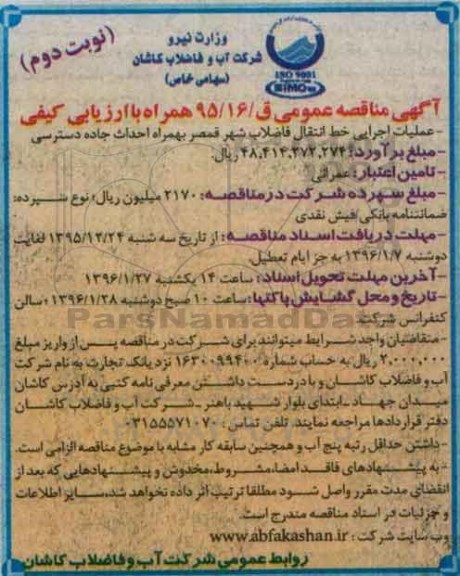 (نوبت دوم)
وزارت نیرو
شرکت آب و فاضلاب کاشان
(سهامی خاص)
ISO 9001
SIMQ
آگهی مناقصه عمومی ق/۹۵/۱۶ همراه با ارزیابی کیفی
-عملیات اجرایی خط انتقال فاضلاب شهر قمصر بهمراه احداث جاده دسترسی
-مبلغ برآورد: ۴۸,۴۱۴,۳۷۲,۲۷۴ ریال.
-تامین اعتبار: عمرانی
-مبلغ سپرده شرکت در مناقصه: ۲۱۷۰ میلیون ریال؛ نوع سپرده:
ضمانتنامه بانکی/فیش نقدی
-مهلت دریافت اسناد مناقصه: از تاریخ سه شنبه ۱۳۹۵/۱۲/۲۴ لغایت
دوشنبه ۱۳۹۶/۱/۷ به جز ایام تعطیل
-آخرین مهلت تحویل اسناد: ساعت ۱۴ یکشنبه ۱۳۹۶/۱/۲۷
-تاریخ و محل گشایش پاکتها: ساعت ۱۰ صبح دوشنبه ۱۳۹۶/۱/۲۸؛ سالن
کنفرانس شرکت
ParsNamadData
-متقاضیان واجد شرایط میتوانند برای شرکت در مناقصه پس از واریز مبلغ
۲,۰۰۰,۰۰۰ ریال به حساب شماره ۱۶۳۰۰۹۹۴۰۰ نزد بانک تجارت به نام شرکت
آب و فاضلاب کاشان و با در دست داشتن معرفی نامه کتبی به آدرس کاشان
میدان جهاد - ابتدای بلوار شهید باهنر - شرکت آب و فاضلاب کاشان
دفتر قراردادها مراجعه نمایند. تلفن تماس: ۰۳۱۵۵۵۷۱۰۷۰
-داشتن حداقل رتبه پنج آب و همچنین سابقه کار مشابه با موضوع مناقصه الزامی است.
-به پیشنهادهای فاقد امضا، مشروط، مخدوش و پیشنهادهایی که بعد از
انقضای مدت مقرر واصل شود مطلقا ترتیب اثر داده نخواهد شد، سایر اطلاعات
و جزئیات در اسناد مناقصه مندرج است.
وب سایت شرکت: www.abfakashan.ir
روابط عمومی شرکت آب و فاضلاب کاشان